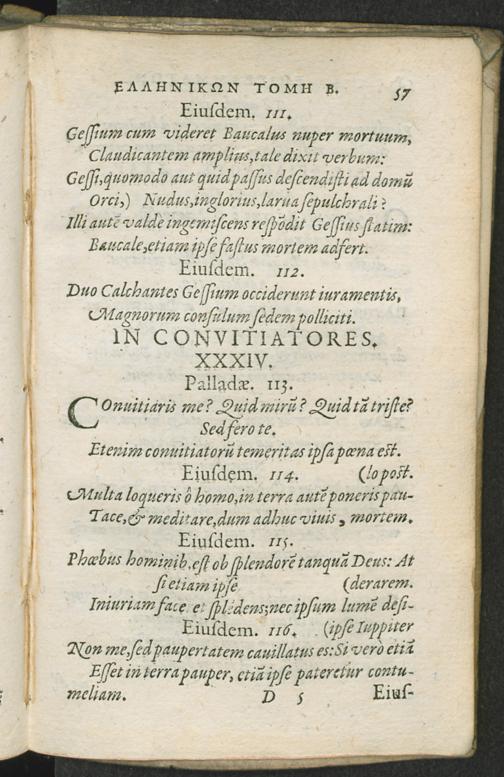 ΕΛΛΗΝΙΚΩΝ ΤΟΜΗ Β. 57
Eiuſdem. 111.
Geſſium cum videret Baucalus nuper mortuum,
Claudicantem amplius, tale dixit verbum:
Geſſi, quomodo aut quid paſſus deſcendiſti ad domū
Orci,) Nudus, inglorius, larua ſepulchrali?
Illi autē valde ingemiſcens reſpōdit Geſſius ſtatim:
Baucale, etiam ipſe faſtus mortem adfert.
Eiuſdem. 112.
Duo Calchantes Geſſium occiderunt iuramentis,
Magnorum conſulum ſedem polliciti.
IN CONVITIATORES.
XXXIV.
Palladæ. 113.
Conuitiaris me? Quid mirū? Quid tā triſte?
Sed fero te.
Etenim conuitiatorū temeritas ipſa pœna eſt.
Eiuſdem. 114. (lo poſt.
Multa loqueris ô homo, in terra autē poneris pau-
Tace, & meditare, dum adhuc viuis, mortem.
Eiuſdem. 115.
Phœbus hominib. eſt ob ſplendorē tanquā Deus: At
ſi etiam ipſe (derarem.
Iniuriam face et ſplēdens; nec ipſum lumē deſi-
Eiuſdem. 116. (ipſe Iuppiter
Non me, ſed paupertatem cauillatus es: Si verò etiā
Eſſet in terra pauper, etiā ipſe pateretur contu-
meliam. D 5 Eiuſ-